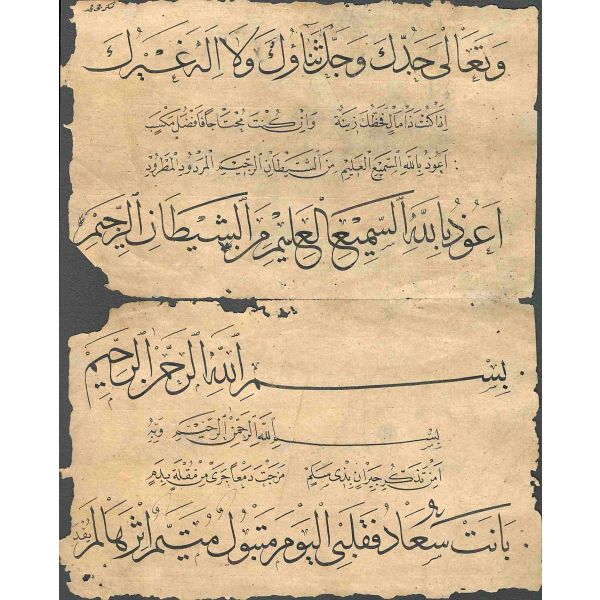 وتعالى جدك وجل ثناؤك ولا اله غيرك
اذا كنت ذا مال فحظك زينة وان كنت محتاجا فافضل مكسب
اعوذ بالله السميع العليم من الشيطان الرجيم المردود المطرود
اَعُوذُ بِاللهِ السَّمِيعِ العَلِيمِ مِنَ الشَّيْطَانِ الرَّجِيمِ
بِسْمِ اللهِ الرَّحْمٰنِ الرَّحِيمِ
بسم الله الرحمن الرحيم وبه
امن تذكر جيران بذي سلم مزجت دمعا جرى من مقلة بدم
بانت سعاد فقلبي اليوم متبول متيم اثرها لم يفد